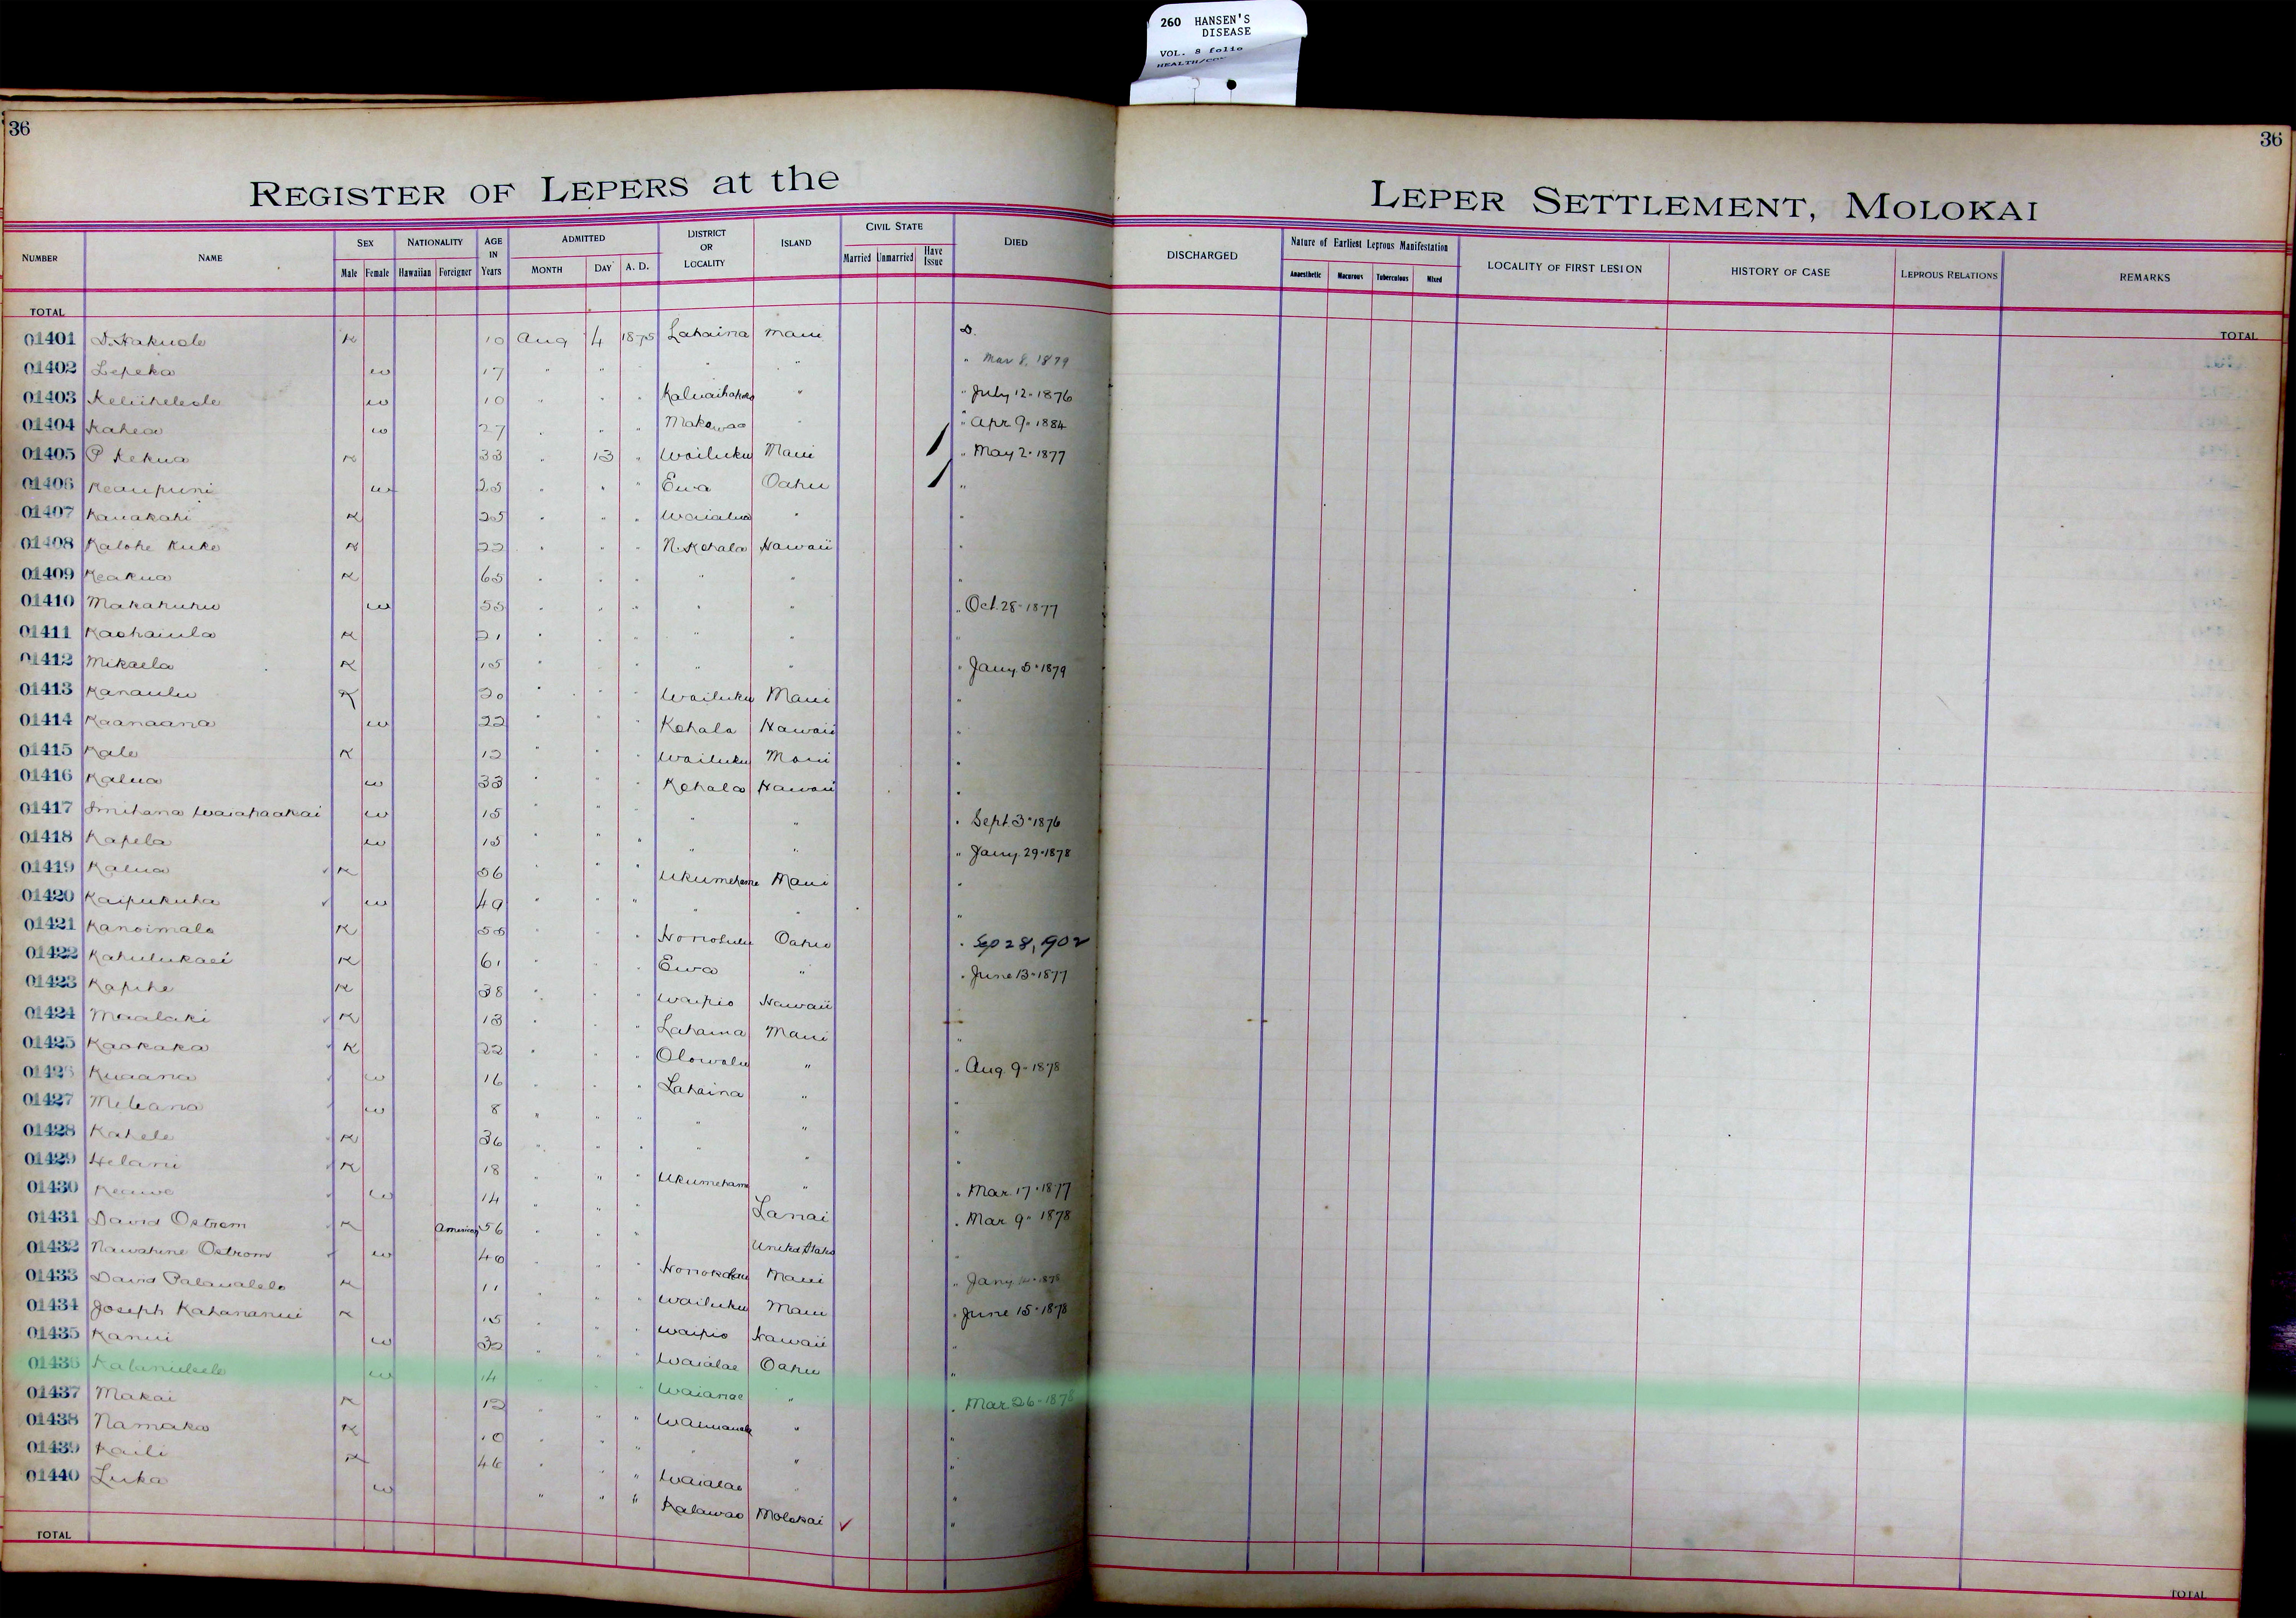 260 HANSEN'S
DISEASE
VOL. 8 folio
36
36
REGISTER OF LEPERS at the LEPER SETTLEMENT, MOLOKAI
NUMBER NAME SEX NATIONALITY AGE IN Years ADMITTED DISTRICT OR LOCALITY ISLAND CIVIL STATE DIED DISCHARGED Nature of Earliest Leprous Manifestation LOCALITY OF FIRST LESION HISTORY OF CASE LEPROUS RELATIONS REMARKS
Male Female Hawaiian Foreigner MONTH DAY A. D. Married Unmarried Have Issue Anaesthetic Macurous Tuberculous Mixed
TOTAL TOTAL
01401 D. Hakuole K 10 Aug 4 1875 Lahaina Maui D.
01402 Lepeka w 17 " " " " " Mar 8, 1879
01403 w 10 " " " " " July 12-1876
01404 Kahea w 27 " " " Makawao " " Apr 9-1884
01405 P Kekua K 33 " 13 " Wailuku Maui " May 2-1877
01406 Keaupuni w 25 " " " Ewa Oahu "
01407 Kauakahi K 25 " " " Waialua " "
01408 Kalohe Kuke K 22 " " " N. Kohala Hawaii "
01409 Keakua K 65 " " " " " "
01410 Makahuhu w 55 " " " " " " Oct. 28-1877
01411 Kaohaiula K 21 " " " " " "
01412 Mikaela K 15 " " " " " " Jany 5-1879
01413 Kanaulu K 20 " " " Wailuku Maui "
01414 Kaanaana w 22 " " " Kohala Hawaii "
01415 Kale K 12 " " " Wailuku Maui "
01416 Kalua w 33 " " " Kohala Hawaii "
01417 w 15 " " " " " " Sept. 3-1876
01418 Kapela w 15 " " " " " " Jany. 29-1878
01419 Kalua K 56 " " " Ukumehame Maui "
01420 Kaipukuha w 49 " " " " " "
01421 Kanoimalo K 55 " " " Honolulu Oahu " Sep 28, 1902
01422 Kahulukaei K 61 " " " Ewa " " June 13-1877
01423 Kapihe K 38 " " " Waipio Hawaii
01424 Maalaki K 13 " " " Lahaina Maui "
01425 Kaokaka K 22 " " " Olowalu " " Aug. 9-1878
01426 Kuaana w 16 " " " Lahaina " "
01427 Meleana w 8 " " " " " "
01428 Kahele K 36 " " " " " "
01429 Helani K 18 " " " Ukumehame " " Mar. 17-1877
01430 Keawe w 14 " " " Lanai " Mar. 9-1878
01431 David Ostrom K American 56 " " " United States "
01432 Nawahine Ostrom w 40 " " " Honokohau Maui " Jany
01433 David Palaualelo K 11 " " " Wailuku Maui " June 15-1878
01434 Joseph Kahananui K 15 " " " Waipio Hawaii "
01435 Kanui w 32 " " " Waialae Oahu "
01436 w 14 " " " Waianae " " Mar. 26-1878
01437 Makai K 12 " " " " "
01438 Namaka K 10 " " " " " "
01439 Kaili K 46 " " " Waialae " "
01440 Luka w " " " Kalawao Molokai "
TOTAL TOTAL